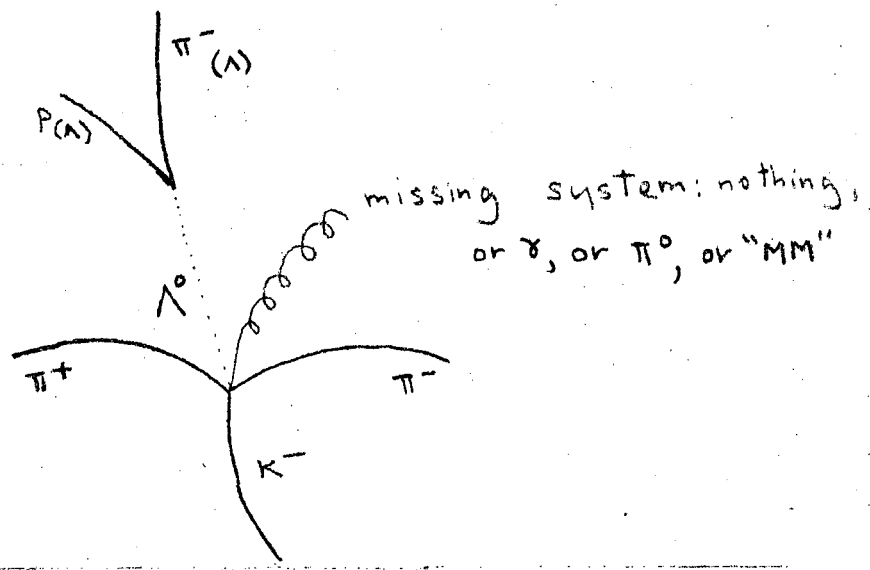 π⁻(Λ)
P(Λ)
missing system: nothing,
or γ, or π⁰, or "MM"
Λ⁰
π⁺
π⁻
K⁻